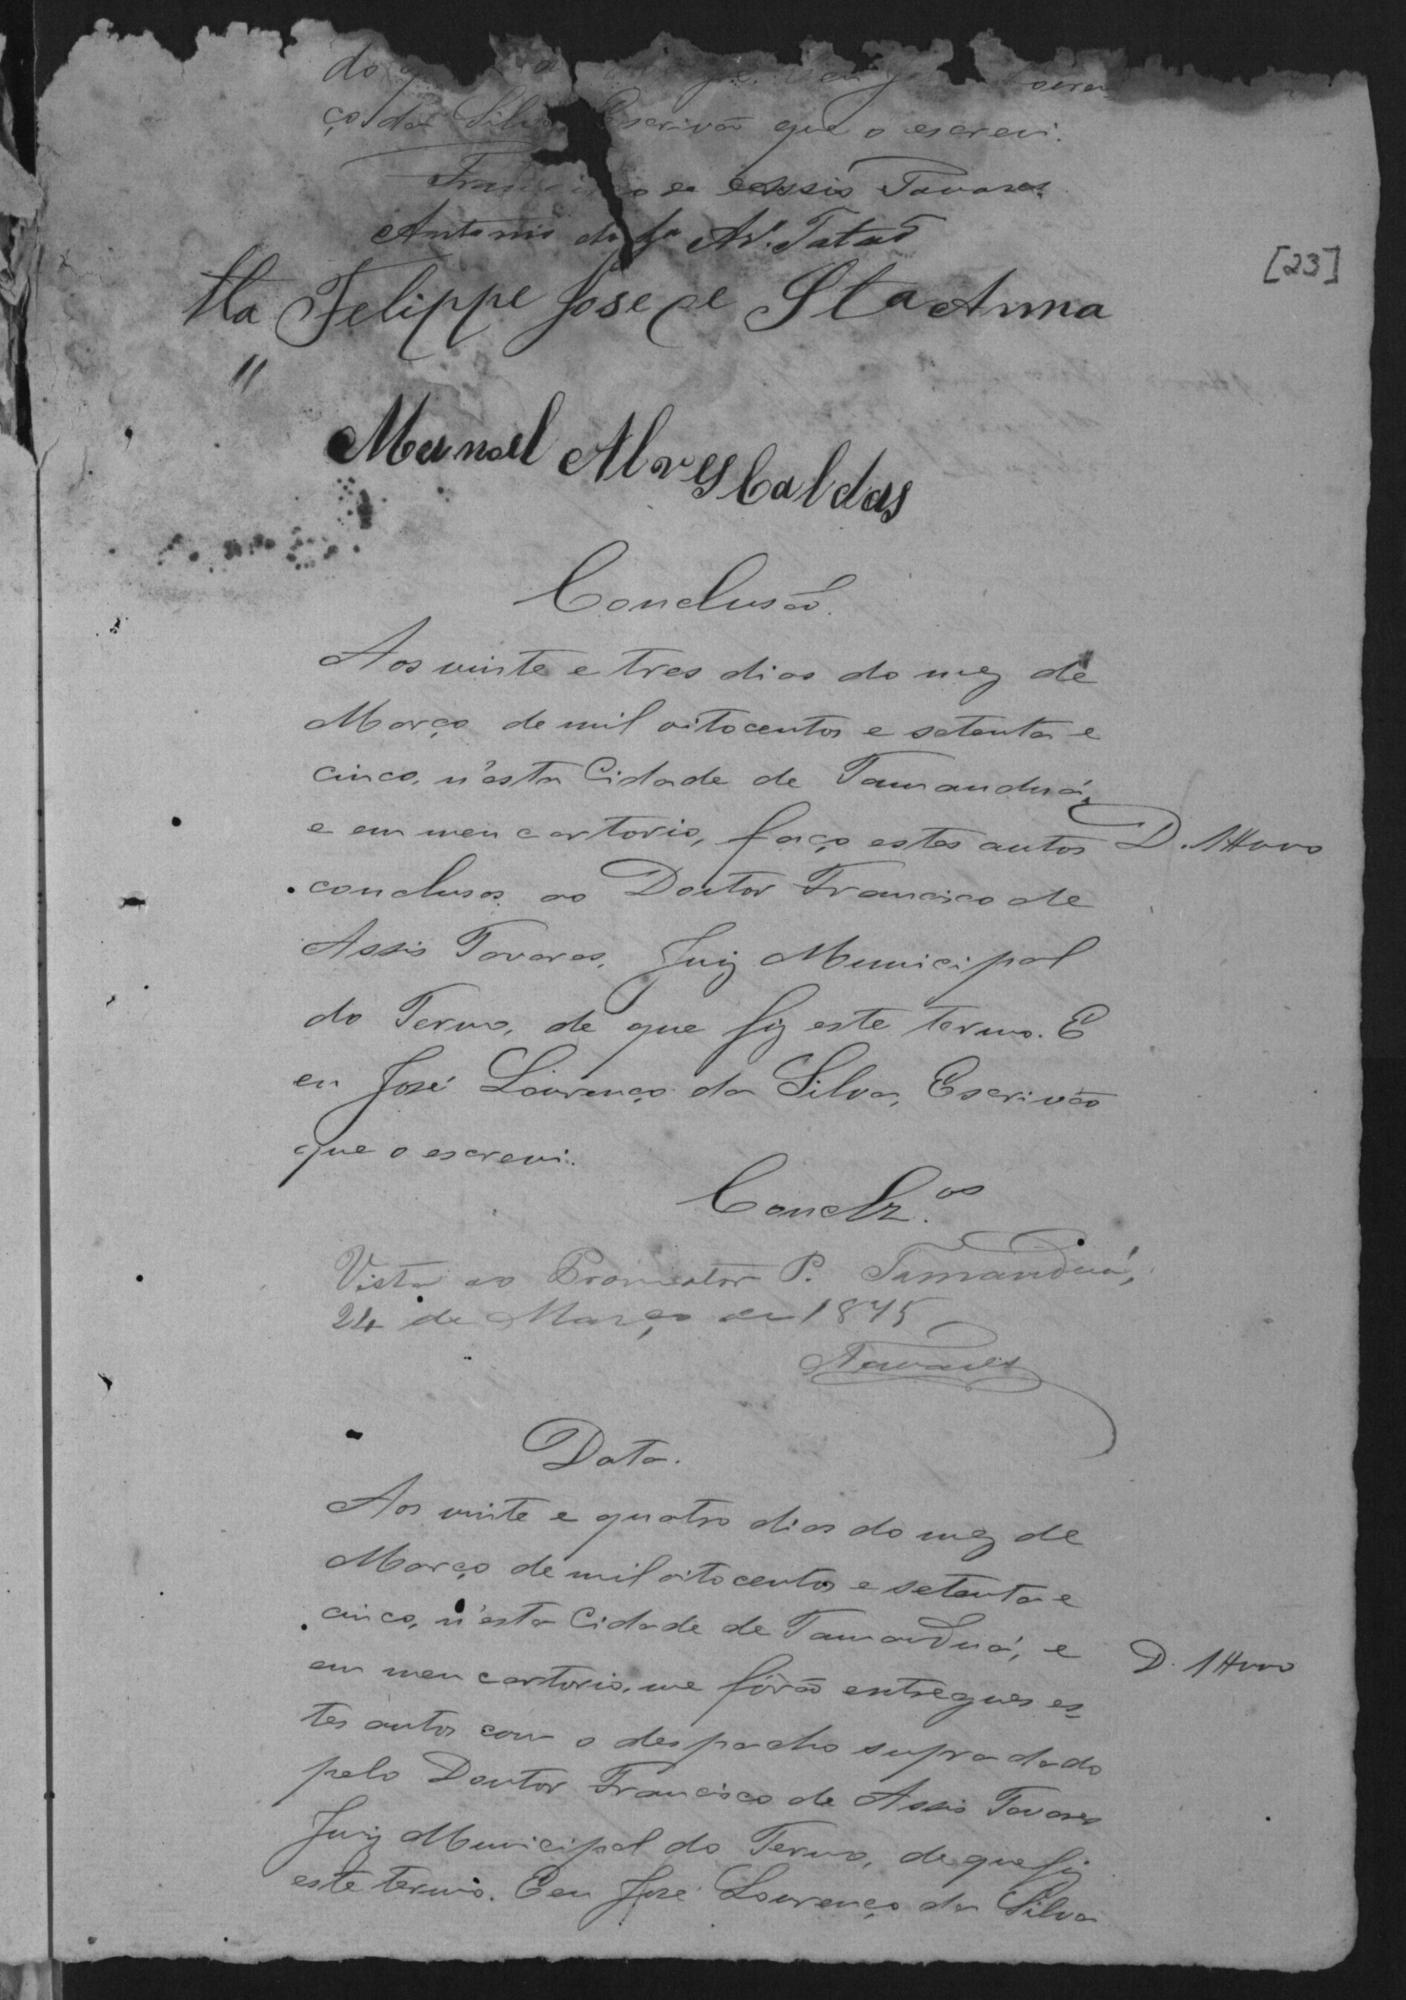 do
ço da Silva Escrivão que o escrevi.
Francisco de Assis Tavares
Antonio da
[23]
Tta Felippe Jose de Sta Anna
"
Manoel Alves Caldas
Conclusão.
Aos vinte e tres dias do mez de
Março de mil oitocentos e setenta e
cinco, n'esta Cidade de Tamanduá,
e em meu cartorio, faço estes autos
D.
conclusos ao Doutor Francisco de
Assis Tavares, Juiz Municipal
do Termo, de que fiz este termo. E
eu José Lourenço da Silva, Escrivão
que o escrevi.
Conclz.os
Vista ao Promotor P. Tamanduá,
24 de Março de 1875
Tavares
Data.
Aos vinte e quatro dias do mez de
Março de mil oito centos e setenta e
cinco, n'esta Cidade de Tamanduá, e
D.
em meu cartorio, me fôrão entregues es-
tes autos com o despacho supra dado
pelo Doutor Francisco de Assis Tavares
Juiz Municipal do Termo, de que fiz
este termo. E eu José Lourenço da Silva